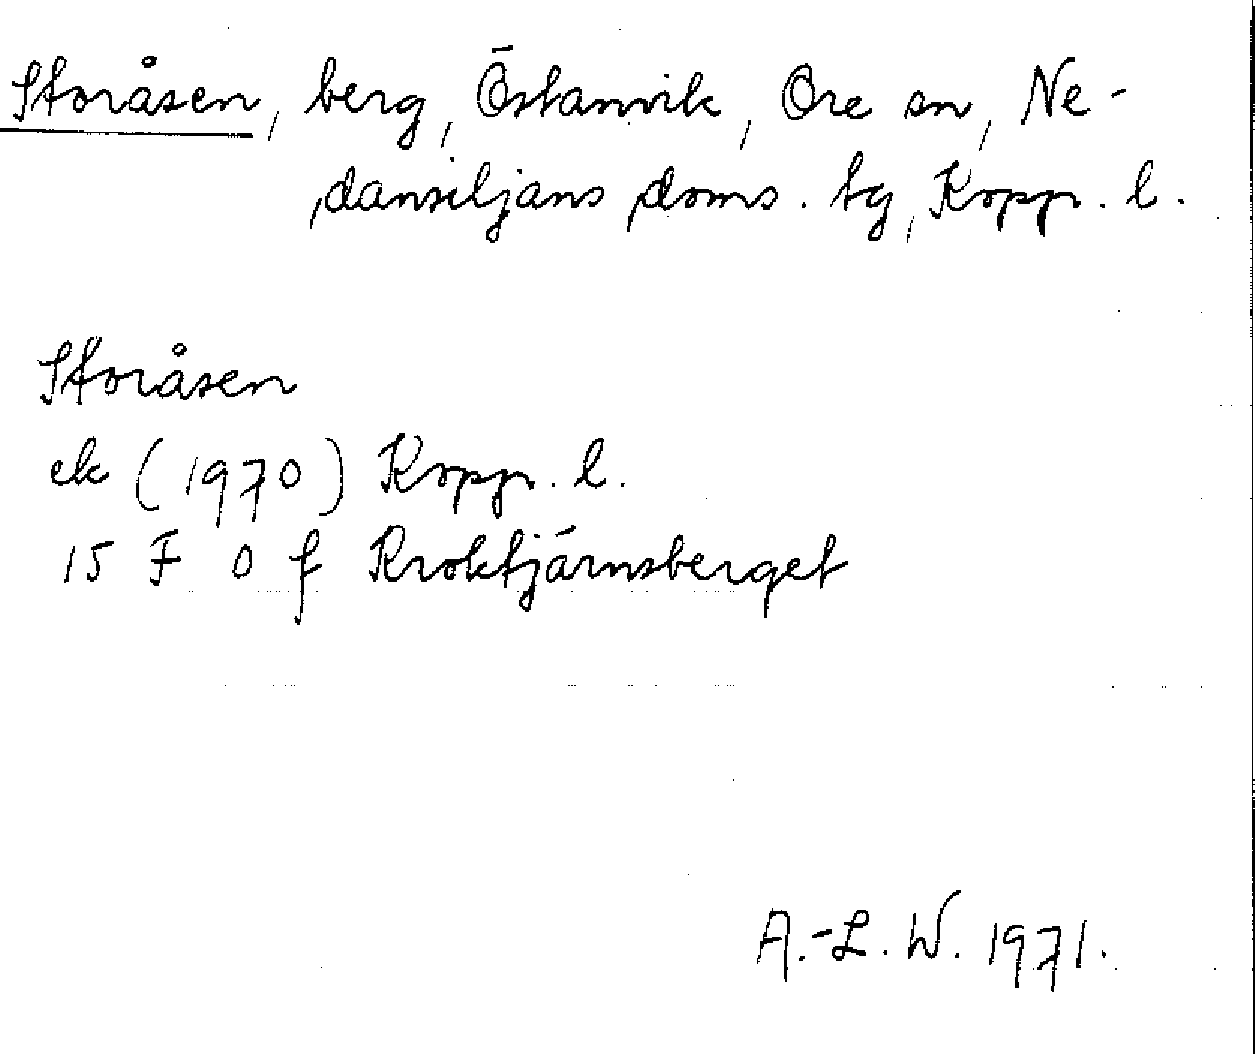 Storåsen, berg, Östanvik, Ore sn, Ne-
dansiljans doms. tg, Kopp. l.
Storåsen
ek (1970) Kopp. l.
15 F 0 f Kroktjärnsberget
A.-L. W. 1971.